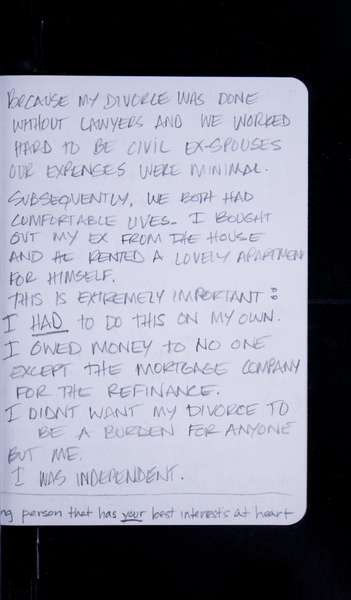 BECAUSE MY DIVORCE WAS DONE
WITHOUT LAWYERS AND WE WORKED
HARD TO BE CIVIL EX-SPOUSES
OUR EXPENSES WERE MINIMAL.
SUBSEQUENTLY, WE BOTH HAD
COMFORTABLE LIVES- I BOUGHT
OUT MY EX FROM THE HOUSE
AND HE RENTED A LOVELY APARTMENT
FOR HIMSELF.
THIS IS EXTREMELY IMPORTANT :
I HAD TO DO THIS ON MY OWN.
I OWED MONEY TO NO ONE
EXCEPT THE MORTGAGE COMPANY
FOR THE REFINANCE.
I DIDNT WANT MY DIVORCE TO
BE A BURDEN FOR ANYONE
BUT ME.
I WAS INDEPENDENT.
ng person that has your best interests at heart